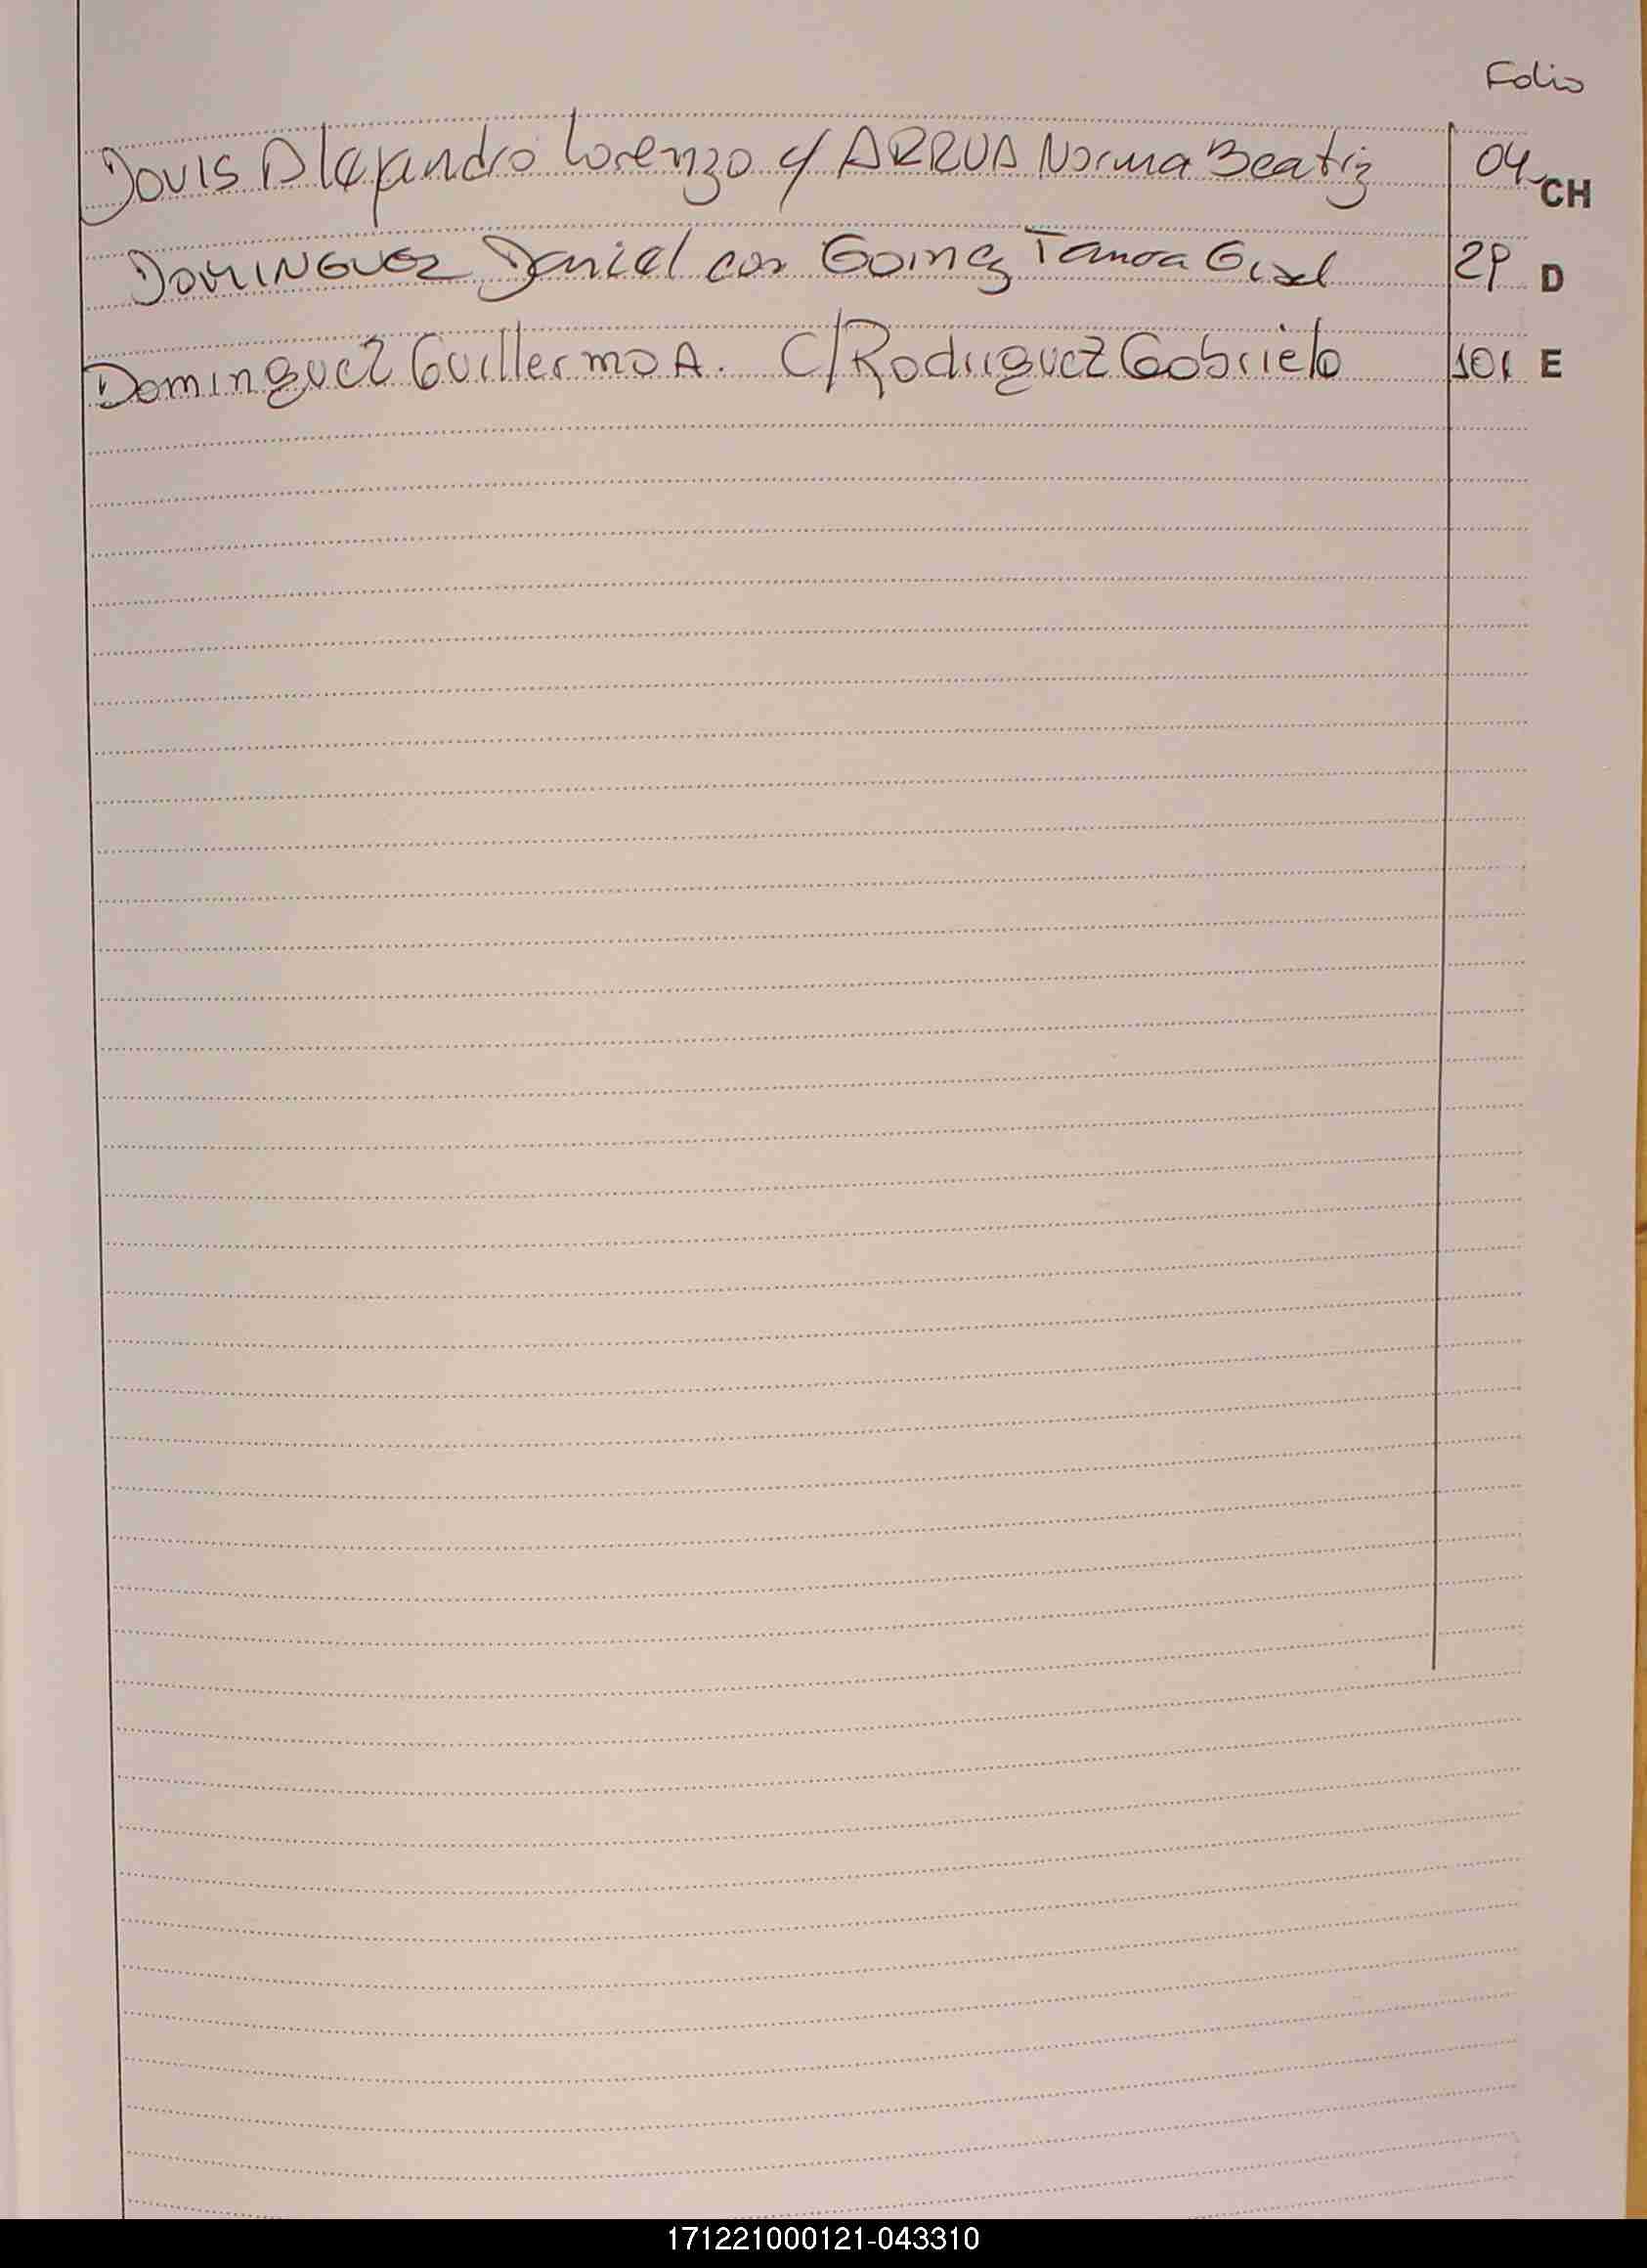 Folio
Dovis Alejandro Lorenzo y ARRUA Norma Beatriz 04 CH
DOMINGUEZ Daniel con Gomez Gisel 29 D
Dominguez Guillermo A. C/Rodriguez Gabriela 101 E
171221000121-043310